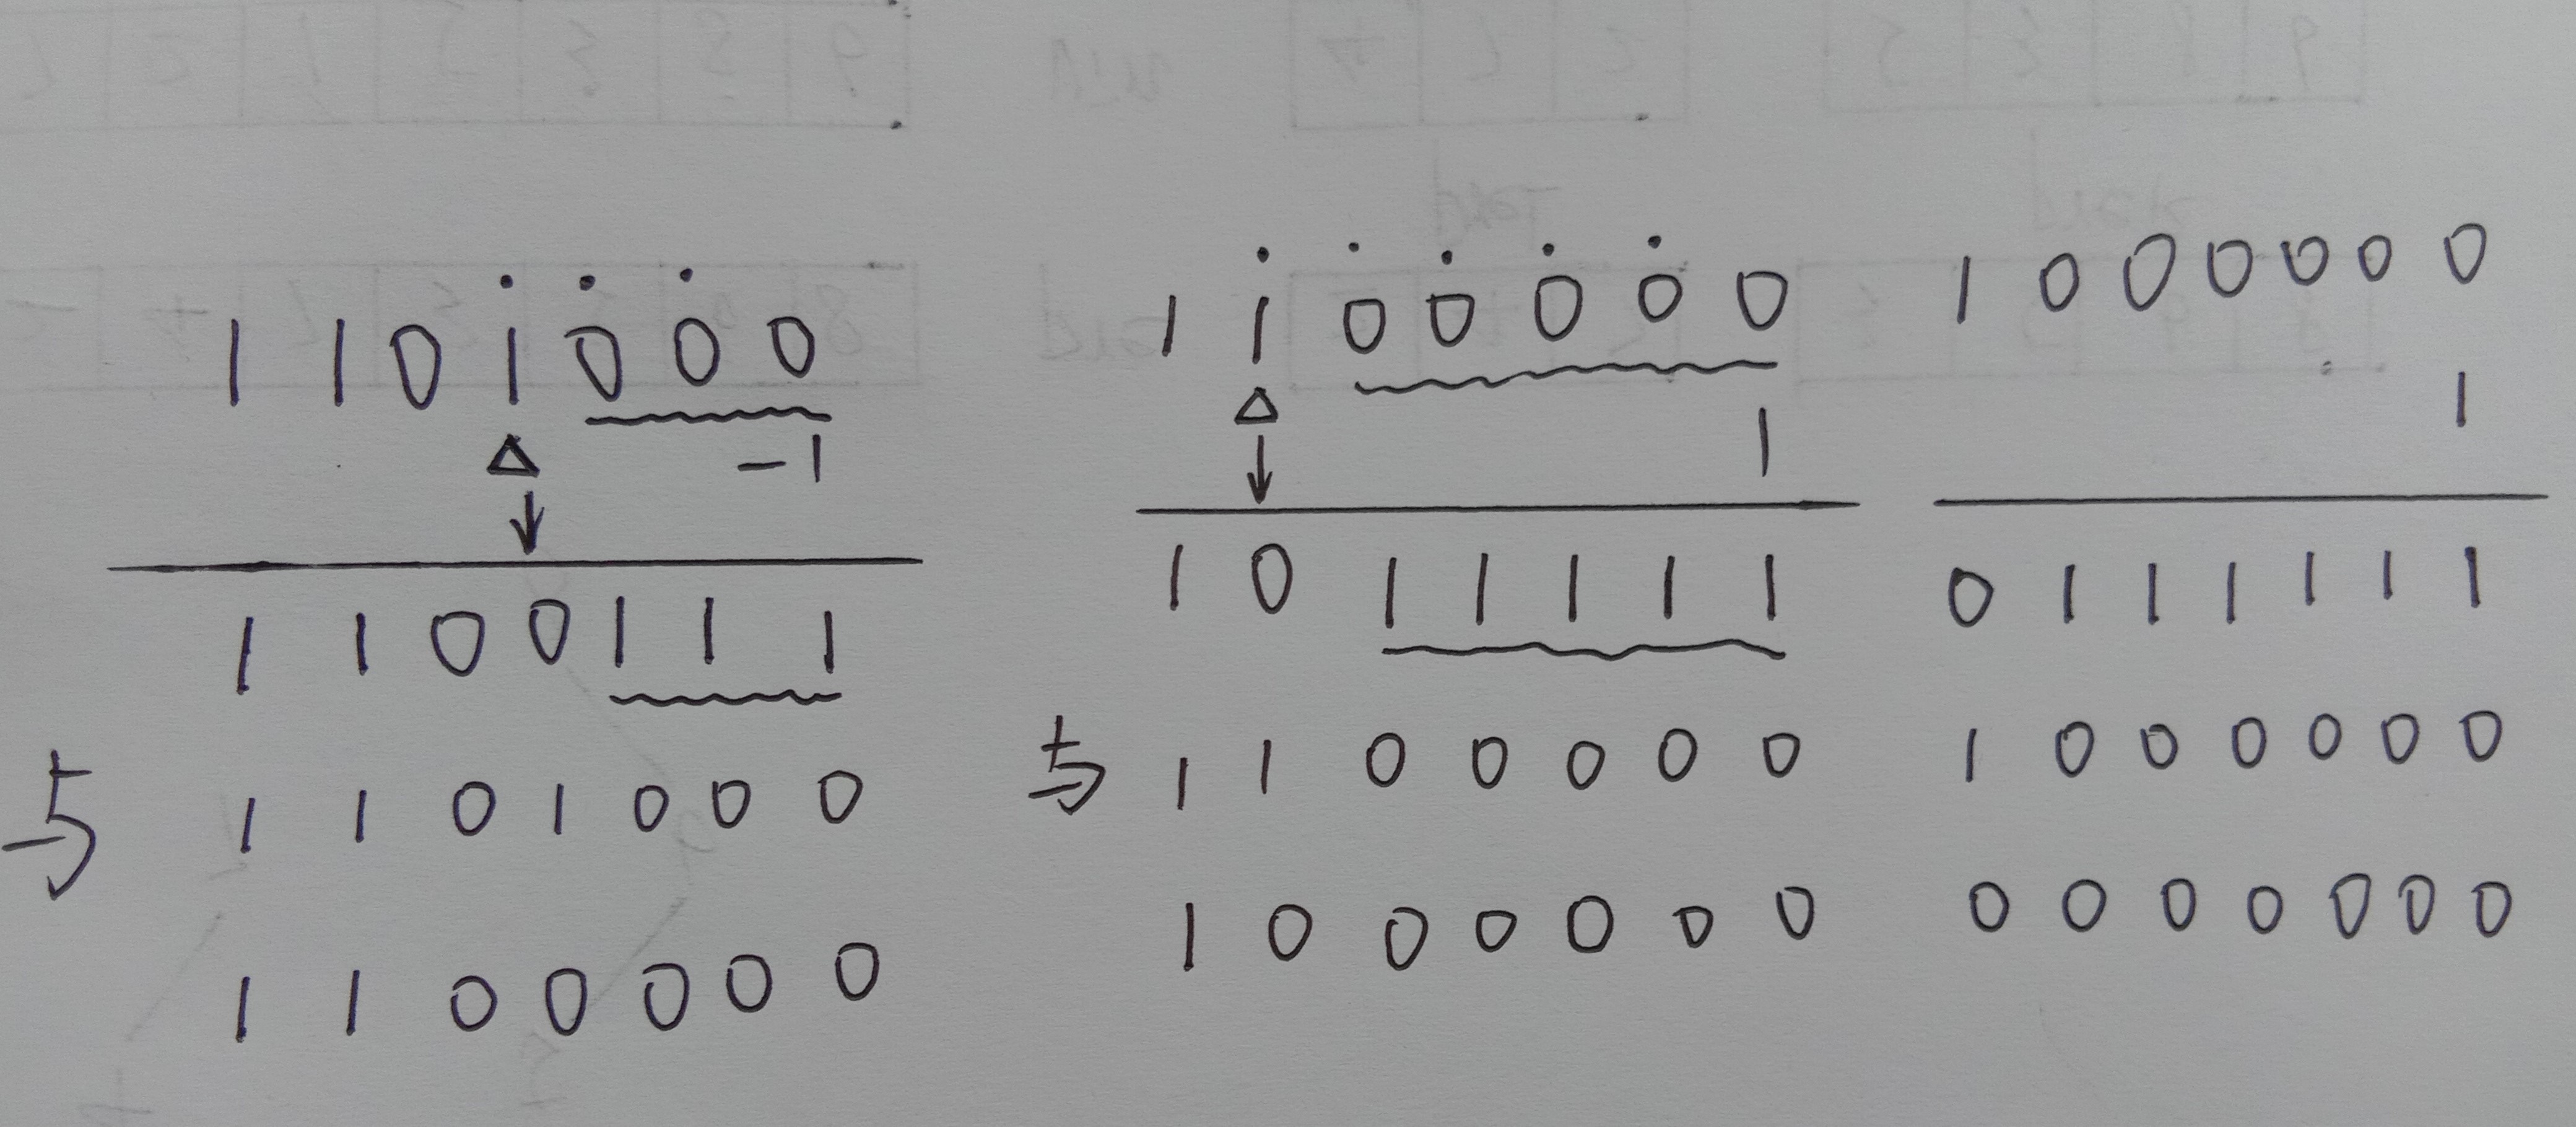 1101000
-1
1100111
与 1101000
1100000
1100000
1
1011111
与 1100000
1000000
1000000
1
0111111
1000000
0000000